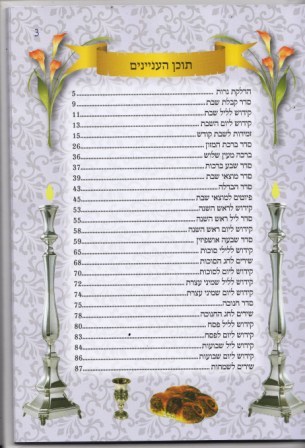 3
תוכן העניינים
הדלקת נרות 5
סדר קבלת שבת 9
קידוש לליל שבת 11
קידוש ליום השבת 13
זמירות לשבת קודש 15
סדר ברכת המזון 26
ברכה מעין שלוש 36
סדר שבע ברכות 37
סדר מוצאי שבת 39
סדר הבדלה 43
פיוטים למוצאי שבת 45
קידוש לראש השנה 53
סדר ליל ראש השנה 55
קידוש ליום ראש השנה 58
סדר שבעה אושפיזין 59
קידוש ללילי סוכות 65
שירים לחג הסוכות 68
קידוש ליום לסוכות 70
קידוש לליל שמיני עצרת 72
קידוש ליום שמיני עצרת 74
סדר חנוכה 75
שירים לחג החנוכה 78
קידוש לליל פסח 80
קידוש ליום לפסח 83
קידוש לליל שבועות 84
קידוש ליום שבועות 86
שירים לשמחות 87